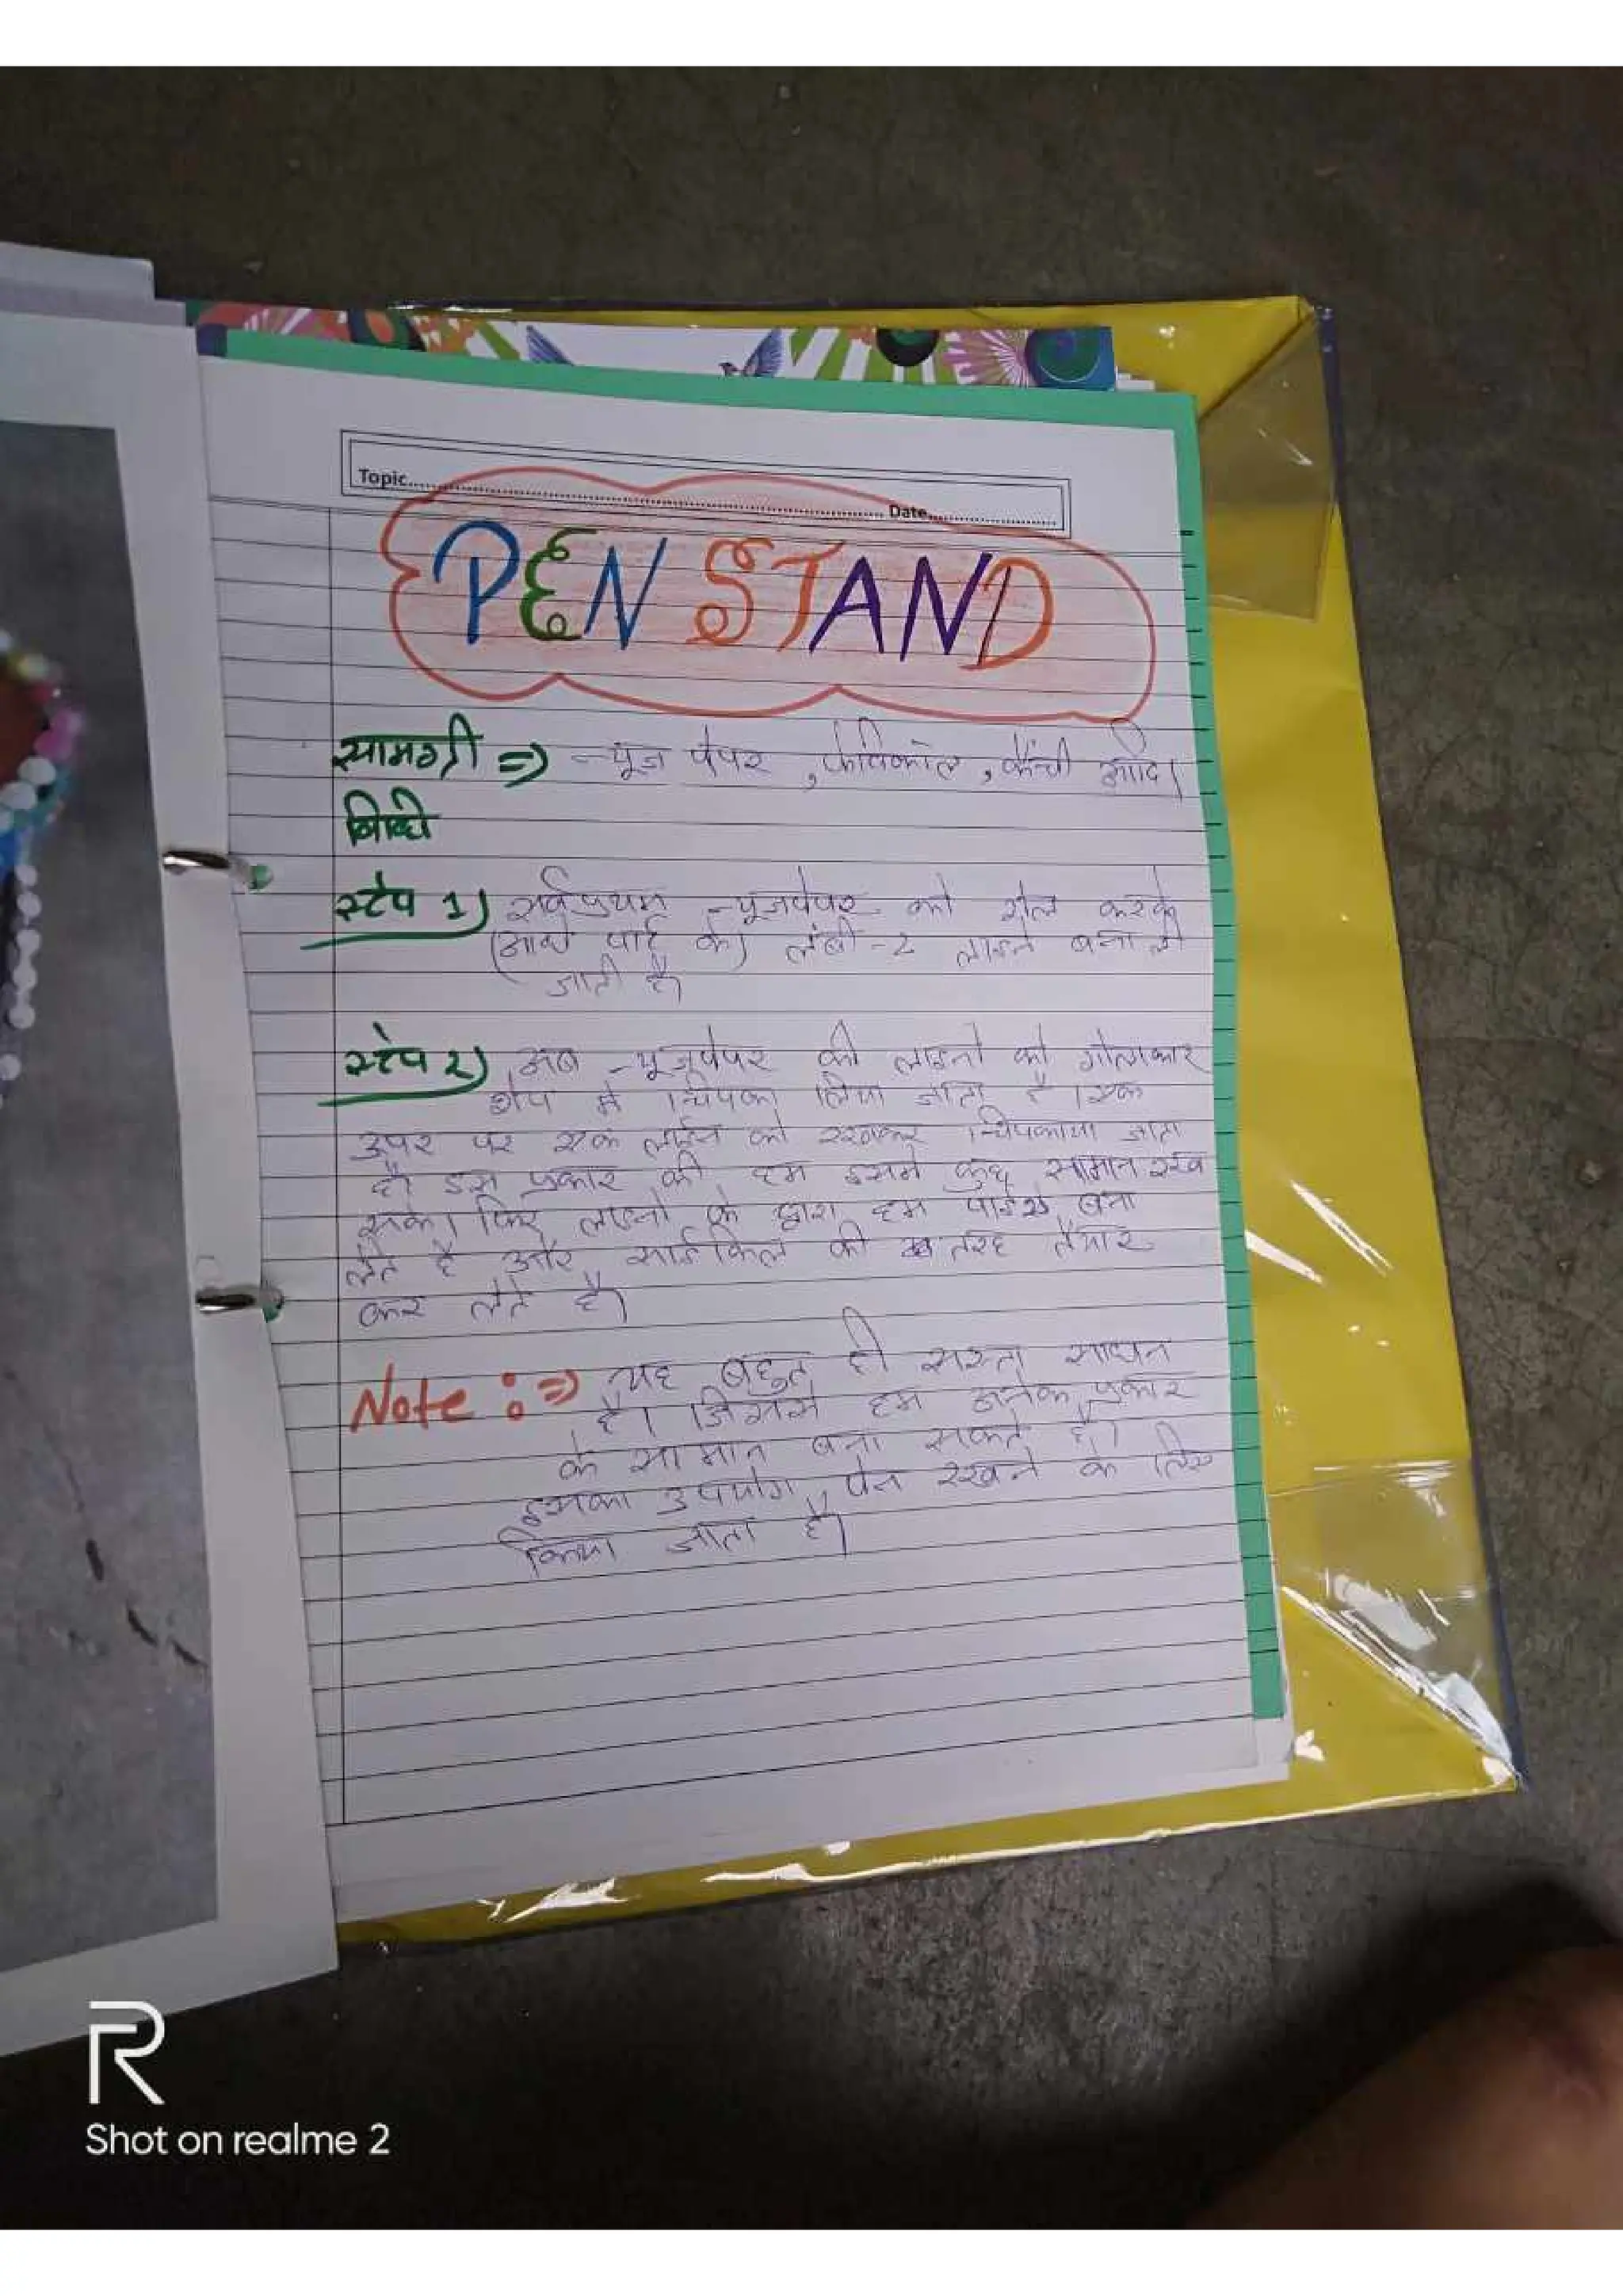 Topic.......................... Date..................
PEN STAND
सामग्री => न्यूज पेपर , फेविकोल , कैंची आदि।
विधि
स्टेप 1) सर्वप्रथम न्यूजपेपर को रोल करके
(आधे पार्ट के) लंबी-2 लाइने बना ली
जाती है।
स्टेप 2) अब न्यूजपेपर की लाइनो को गोलाकार
शेप मे चिपका लिया जाता है। एक
उपर पर एक लाईन को रखकर चिपकाया जाता
है। इस प्रकार की हम इसमे कुछ सामान रख
सके। फिर लाइनो के द्वारा हम पाइसे बना
लेते है और साईकिल की तरह तैयार
कर लेते है।
Note :=> यह बहुत ही सस्ता साधन
है। जिससे हम अनेक प्रकार
के सामान बना सकते है।
इसका उपयोग पेन रखने के लिए
किया जाता है।
R
Shot on realme 2